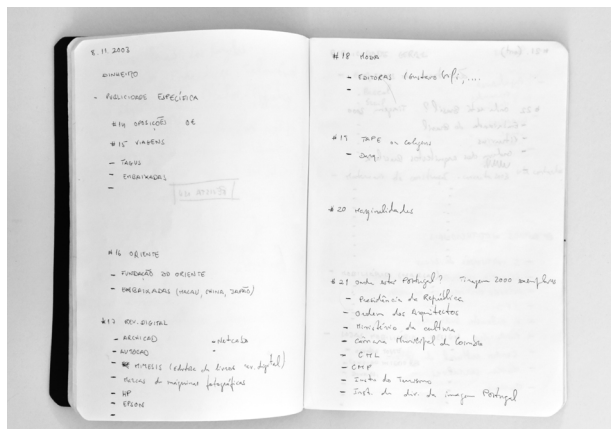 8.11.2003
DINHEIRO
- PUBLICIDADE ESPECÍFICA
#14 OPOSIÇÕES 0€
#15 VIAGENS
- TAGUS
- EMBAIXADAS
-
#16 ORIENTE
- FUNDAÇÃO DO ORIENTE
- EMBAIXADAS (MACAU, CHINA, JAPÃO)
#17 REV. DIGITAL
- ARCHICAD
- AUTOCAD
- MIMESIS (editora de livros digital)
- Marcas de máquinas fotográficas
- HP
- EPSON
-
#18 MODA
- EDITORAS (Gustavo Gili, ...
-
#19 TAPE ou colagens
- DAM
#20 Marginalidades
#21 onde está Portugal? Tiragem 2000 exemplares
- Presidência da República
- Ordem dos Arquitectos
- Ministério da cultura
- Câmara Municipal de Coimbra
- CML
- CMP
- Insto do Turismo
- Inst. de div. da imagem Portugal